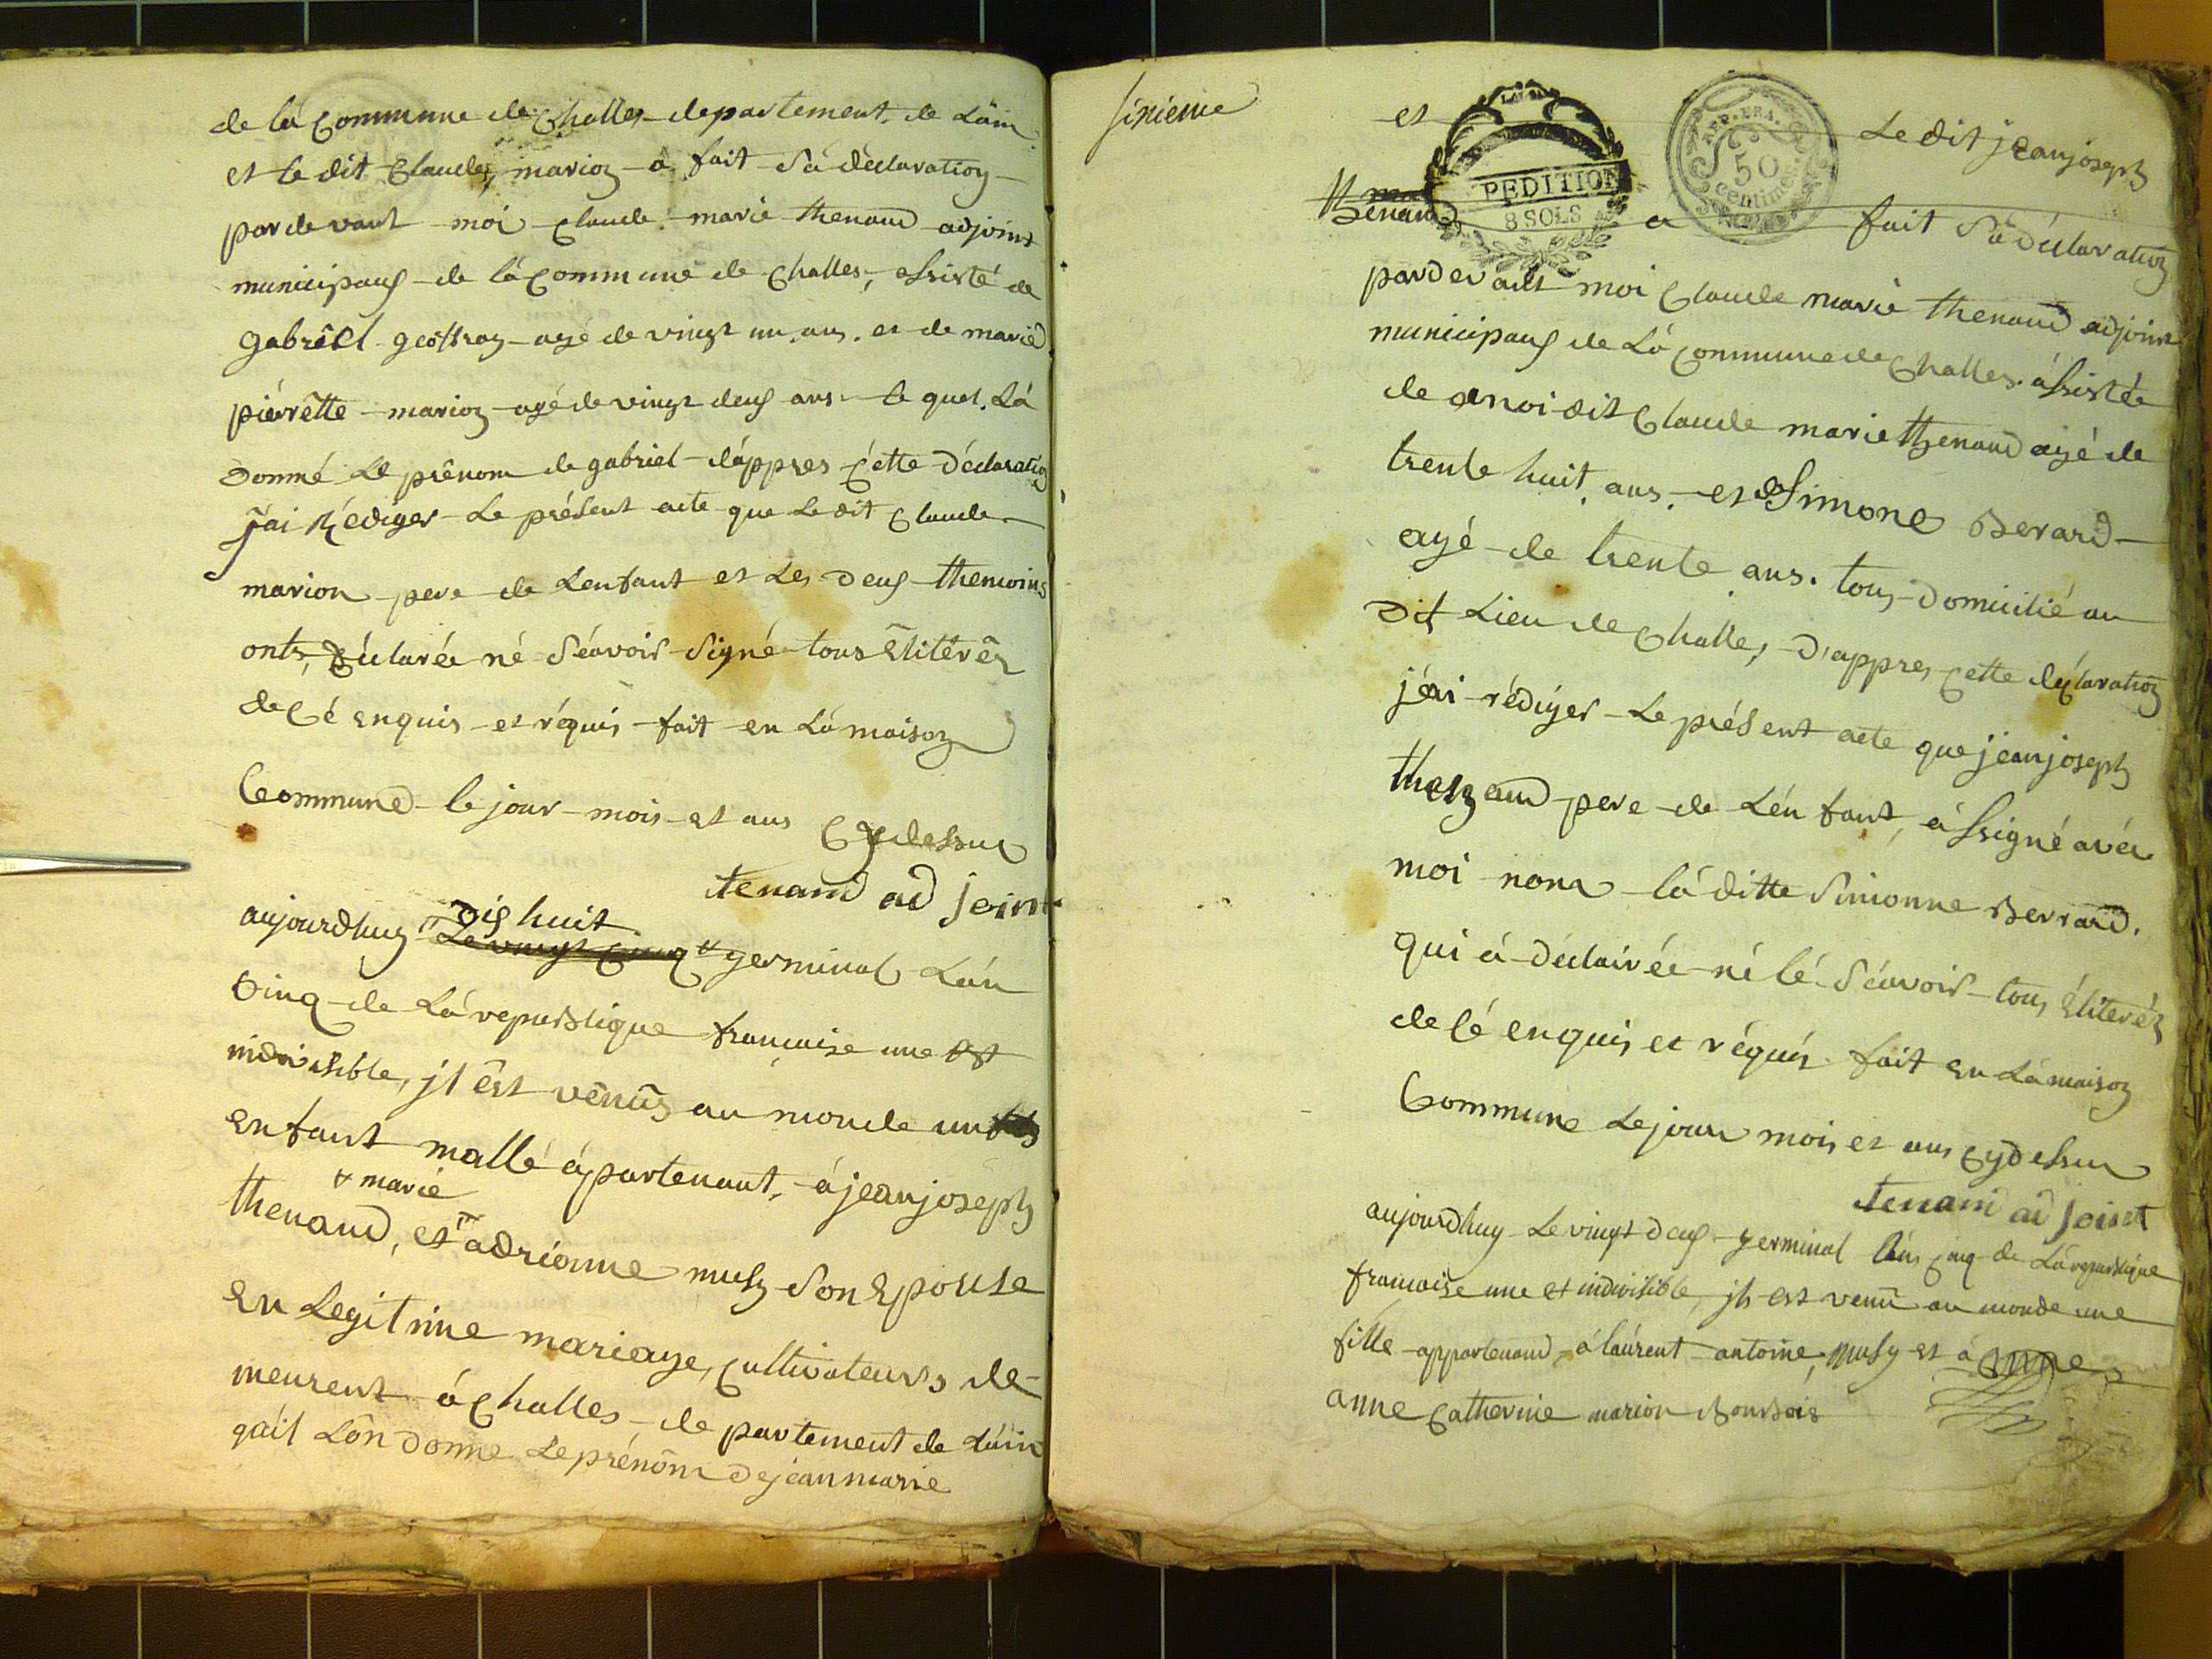 de lá Commune de Challes departement de Láin
et le dit Claude marion a fait Sa déclaration
par devant moi Claude marie thenaud adjoint
municipaux de lá Commune de Challes, assisté de
gabriel geoffray agé de vingt un ans. et de marie
piérrette marion agé de vingt deux ans le quel. Lá
Donné Le prénom de gabriel dáppres Cette Déclaration
Jái Rédiger Le présent acte que Le dit Claude
marion pere de Lenfant et Les deux themoins
onts, Déclarée né Séavoir Signé tous Élitéréz
de Cé enquis et réquis fait en Lá maison
Commune le jour mois et ans Cydessus
tenand ad joint
dix huit
aujourdhuy Le vingt Cinq germinal Lán
Cinq de Lá republique francaise une Et
indivisible, jl est vénûs au monde un fils
enfant mallé ápartenant, á jean joseph
+ marie
thenaud, et adriénne musy Son Epouse
en Legitime mariage, Cultivateurs de-
meurent á Challes departement de Láin
qáil Lon donne Le prénom de jean marie
sixieme
et Le dit jean joseph
EXPEDITION
8 SOLS
REP. FRA.
50
Centimes
thenaud a fait Sá déclaration
pardevant moi Claude marie thenaud adjoint
municipaux de Lá Commune de Challes. ássistée
de moi dit Claude marie thenaud agé de
trente huit ans. et de Simone Berard
agé de trente ans. tous domicilié au
dit Lieu de Challes, D'appres Cette déclaration
jéai rédiger Le présent acte que jean joseph
thenaud pere de Lén fant, á Ssigné avéc
moi non la ditte Simonne Berrard.
qui á déclairée né lé Séavoir tous Élitéréz
de Cé enquis et réquis fait en Lá maison
Commune Le jour mois et ans Cydessus
tenand ad joint
aujourdhuy Le vingt deux germinal Lán Cinq de Lá republique
francaise une et indivisible, jls est venû au monde une
fille appartenand, á laúrent antoine musy et á anne
anne Catherine marion Bourbois